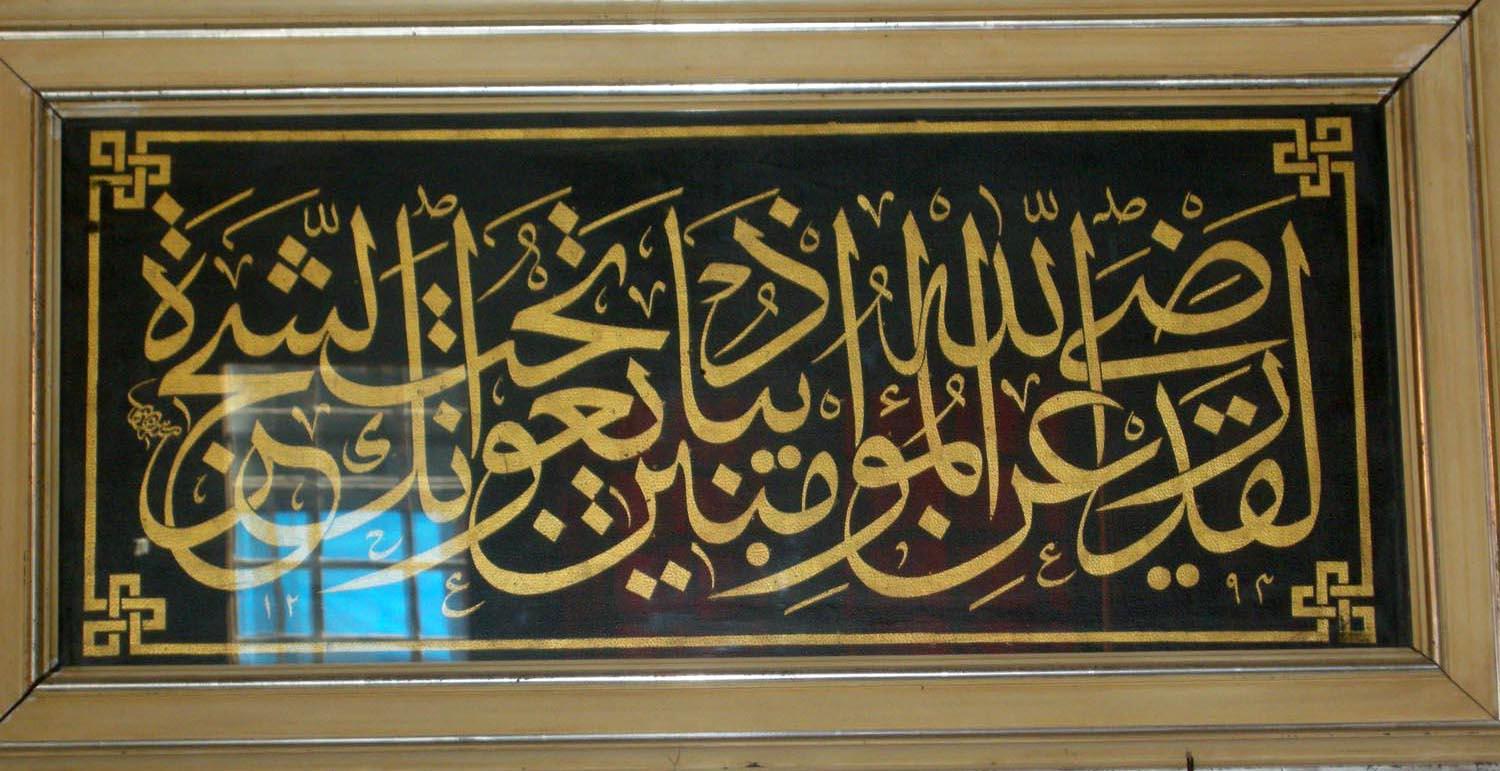 لقد رضى الله عن المؤمنين اذ يبايعونك تحت الشجرة
١٢ ٩٣